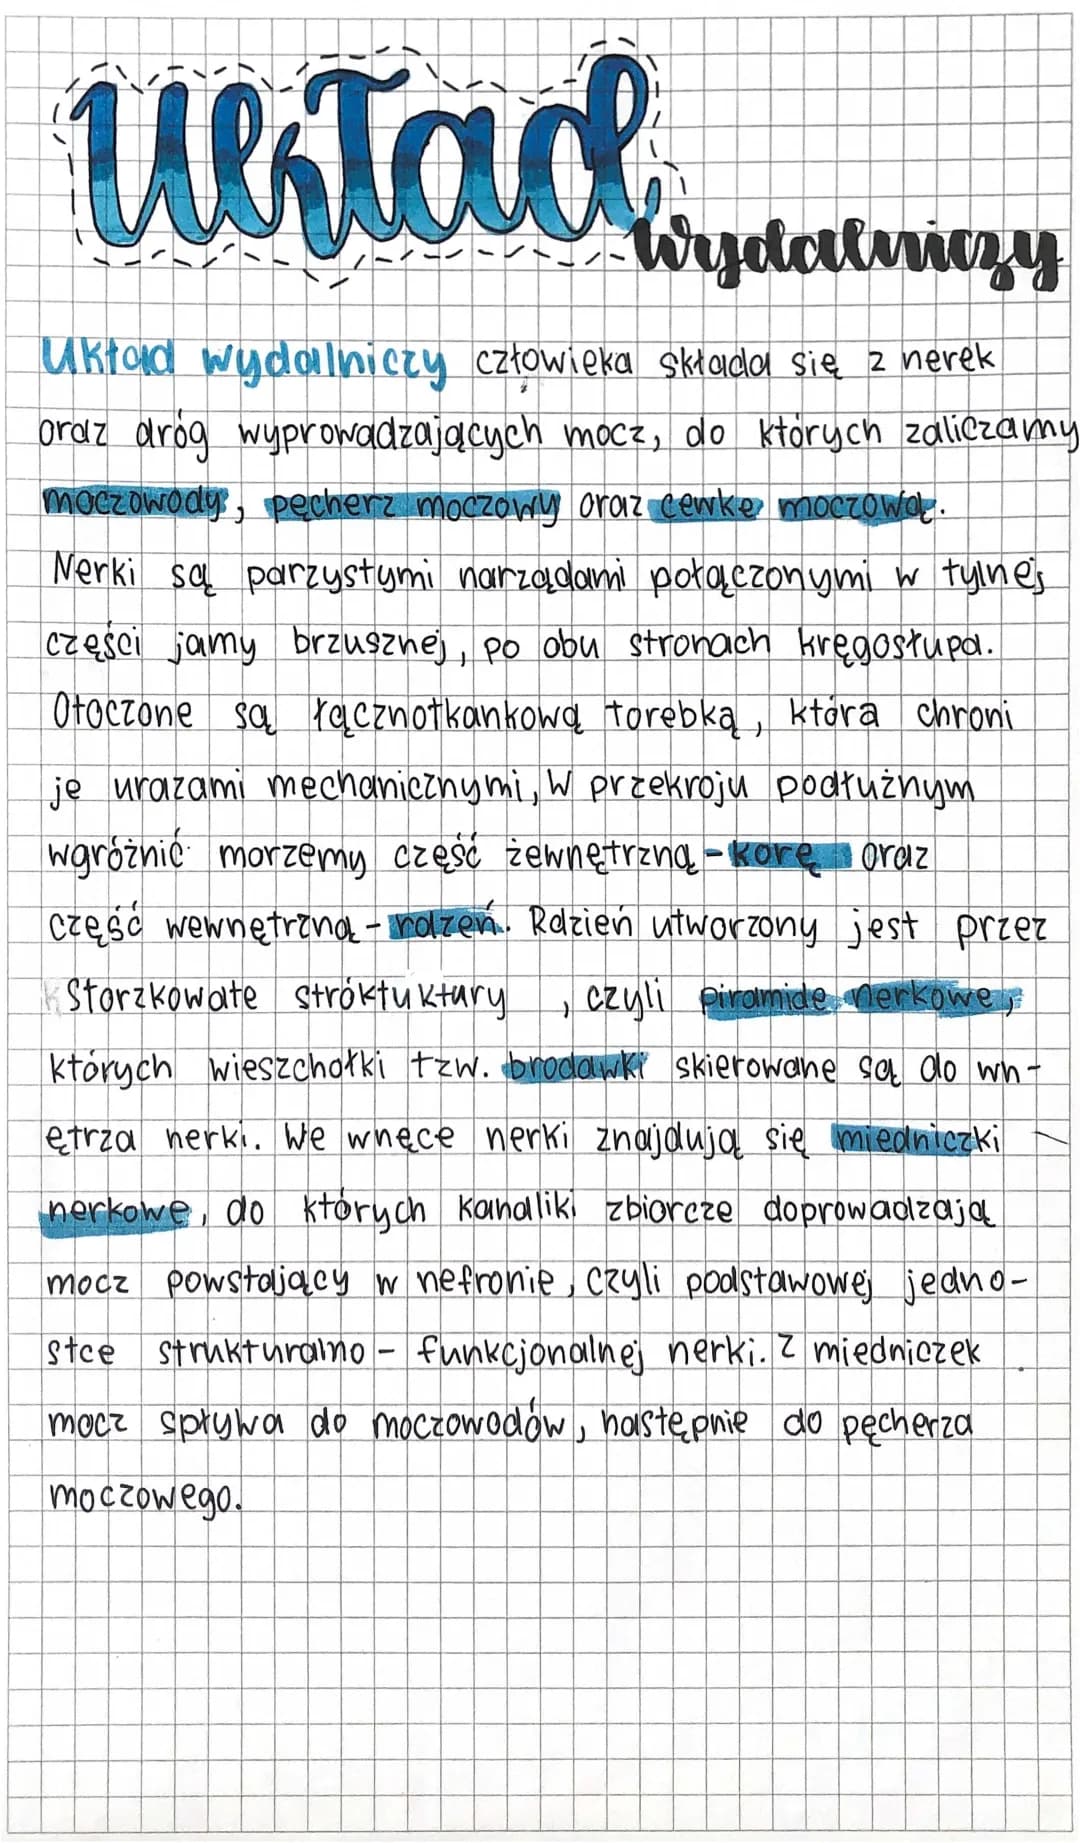 Układ
wydalniczy
Układ wydalniczy człowieka składa się z nerek
oraz dróg wyprowadzających mocz, do których zaliczamy
moczowody, pęcherz moczowy oraz cewke moczową.
Nerki są parzystymi narządami połączonymi w tylnej
części jamy brzusznej, po obu stronach kręgosłupa.
Otoczone są łącznotkankową torebką, która chroni
je urazami mechanicznymi, W przekroju podłużnym
wgróżnić morzemy część zewnętrzną - korę oraz
część wewnętrzną - rdzeń. Rdzień utworzony jest przez
Storzkowate stróktuktury , czyli piramide nerkowe,
których wieszchołki tzw. brodawki skierowane są do wn-
ętrza nerki. We wnęce nerki znajdują się miedniczki
nerkowe, do których kanaliki zbiorcze doprowadzają
mocz powstający w nefronie, czyli podstawowej jedno-
stce strukturalno - funkcjonalnej nerki. Z miedniczek
mocz spływa do moczowodów, następnie do pęcherza
moczowego.